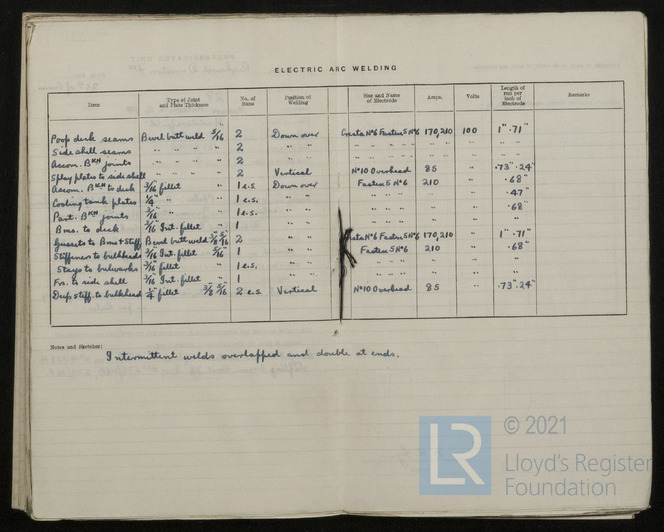 ELECTRIC ARC WELDING
Item Type of Joint and Plate Thickness No. of Runs Position of Welding Size and Name of Electrode Amps. Volts Length of run per inch of Electrode Remarks
Poop deck seams Bevel butt weld 5/16" 2 Down over Cresta No 6 Fastex 5 No 6 170,210 100 1" .71"
Side shell seams " " " " 2 " " " " " " " " "
Accom. Bkh joints " " " " 2 " " " " " " " " "
Splay plates to side shell " " " " 2 Vertical No 10 Overhead 85 " .73" .24"
Accom. Bkh to deck 3/16 fillet " 1 e.s. Down over Fastex 5 No 6 210 " .68"
Cooling tank plates 1/4" " " 1 e.s. " " " " " " .47"
Part. Bkh joints 3/16" " 1 e.s. " " " " " " .68"
Bms. to deck 3/16" Int. fillet " 1 " " " " " " "
Gussets to Bms + Stiffs Bevel butt weld 3/8 5/16" 2 " " Cresta No 6 Fastex 5 No 6 170,210 " 1" .71"
Stiffeners to bulkheads 3/16 Int. fillet 5/16" 1 " " Fastex 5 No 6 210 " .68"
Stays to bulwarks 3/16" fillet " 1 e.s. " " " " " " "
Frs. to side shell 3/16 Int. fillet " 1 " " " " " " "
Deep stiff. to bulkhead 1/4" fillet 3/8 5/16" 2 e.s. Vertical No 10 Overhead 85 " .73" .24"
Notes and Sketches:
Intermittent welds overlapped and double at ends.
LR
© 2021
Lloyd's Register
Foundation